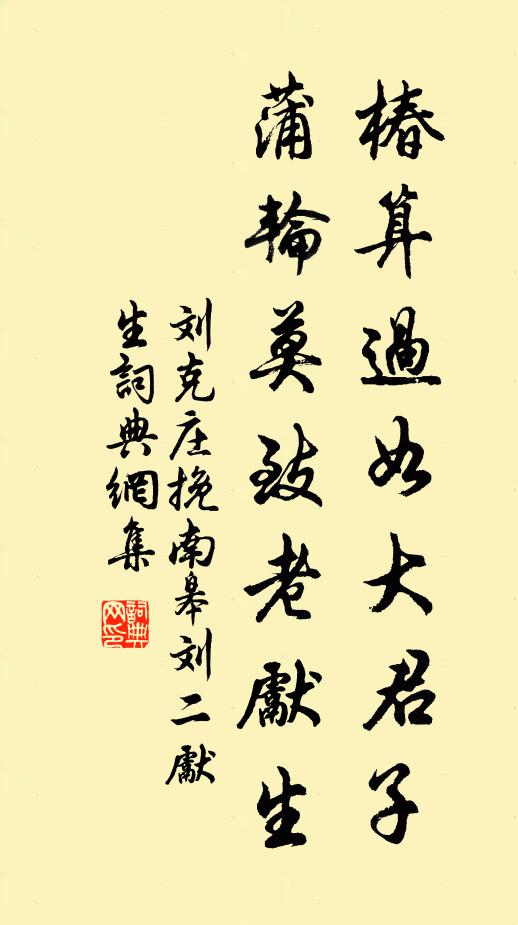 椿算過如大君子
蒲輪莫致老獻生
刘克庄挽南皋刘二獻
生詞典網集
詞典网印